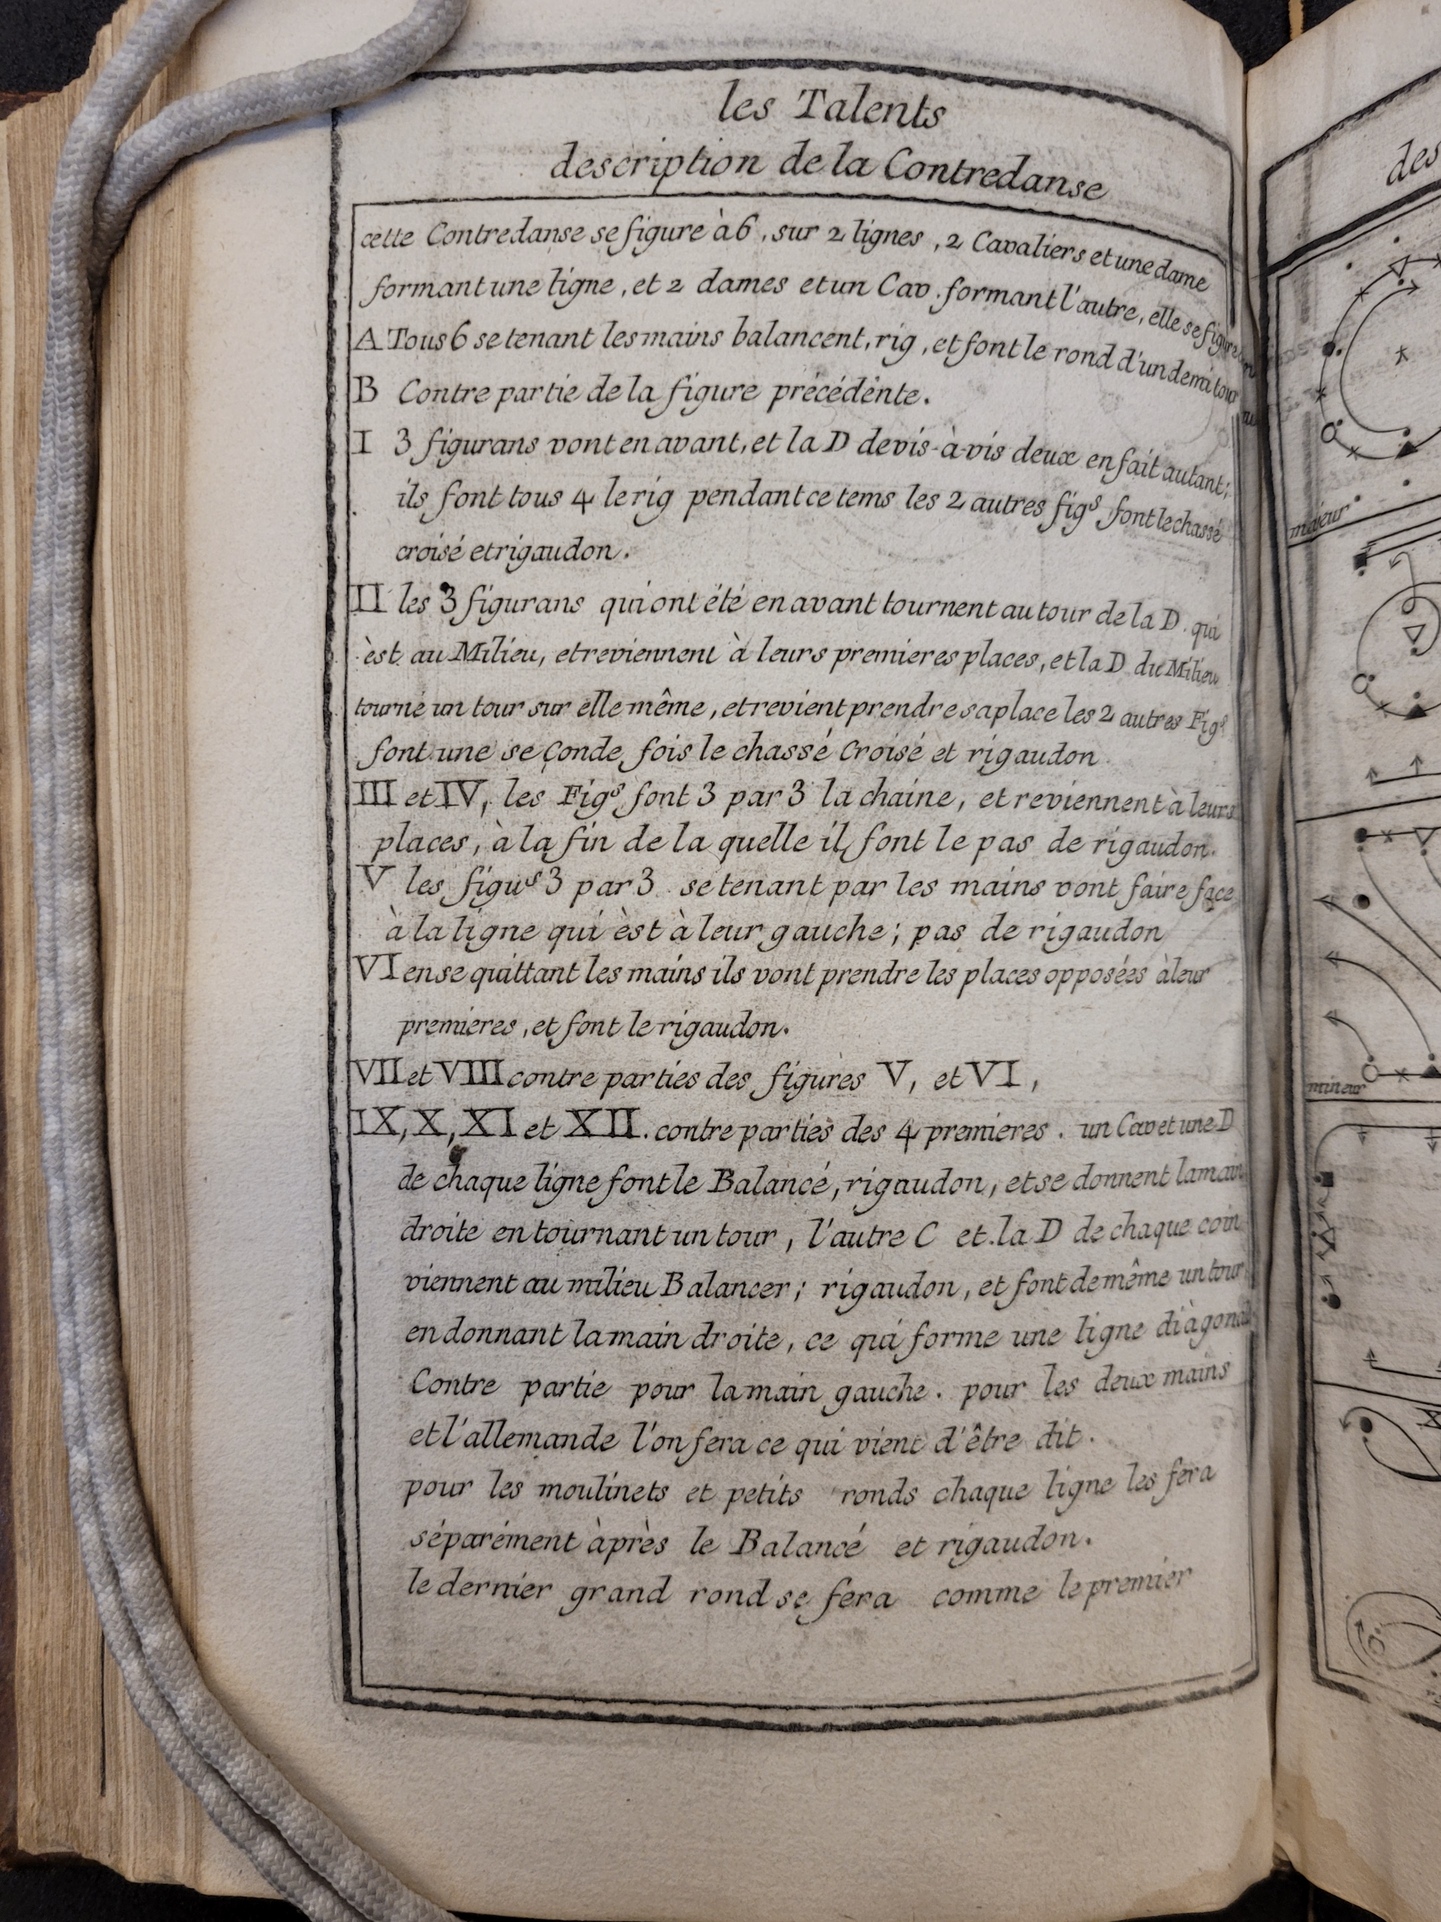 les Talents
description de la Contredanse
cette Contredanse se figure à 6, sur 2 lignes, 2 Cavaliers et une dame
formant une ligne, et 2 dames et un Cav. formant l'autre, elle se figure
A Tous 6 se tenant les mains balancent, rig, et font le rond d'un demi tour
B Contre partie de la figure précédênte.
I 3 figurans vont en avant, et la D de vis-à-vis deux en fait autant;
ils font tous 4 le rig pendant ce tems les 2 autres figs font le chassé
croisé et rigaudon.
II les 3 figurans qui ont été en avant tournent autour de la D. qui
èst au Milieu, et reviennent à leurs premieres places, et la D du Milieu
tourne un tour sur elle même, et revient prendre sa place les 2 autres Figs
font une se conde fois le chassé Croisé et rigaudon
III et IV, les Figs font 3 par 3 la chaine, et reviennent à leurs
places, à la fin de la quelle il font le pas de rigaudon.
V les figus 3 par 3 se tenant par les mains vont faire face
à la ligne qui èst à leur gauche; pas de rigaudon
VI en se quittant les mains ils vont prendre les places opposées à leur
premieres, et font le rigaudon.
VII et VIII contre parties des figures V, et VI,
IX, X, XI et XII. contre parties des 4 premieres. un Cav et une D
de chaque ligne font le Balancé, rigaudon, et se donnent la main
droite en tournant un tour, l'autre C et la D de chaque coin
viennent au milieu Balancer; rigaudon, et font de même un tour
en donnant la main droite, ce qui forme une ligne diàgonal
Contre partie pour la main gauche. pour les deux mains
et l'allemande l'on fera ce qui vient d'être dit.
pour les moulinets et petits ronds chaque ligne les fera
séparément àprès le Balancé et rigaudon.
le dernier grand rond se fera comme le premier
des
majeur
mineur